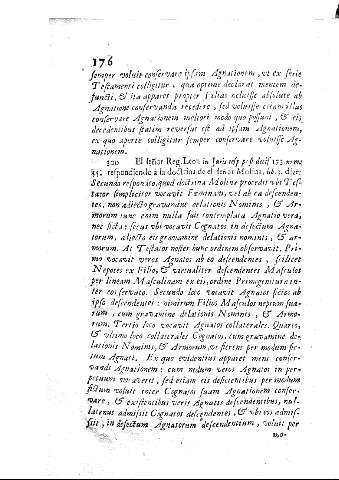 176
semper voluit conservare ipsam Agnationem, ut ex serie
Testamenti colligitur, qua optime declarat mentem de-
functi, & ita apparet propter filias noluisse absolute ab
Agnatione conservanda recedere, sed voluisse etiam illas
conservare Agnationem meliori modo quo possunt, & eis
decedentibus statim reversus est ad ipsam Agnationem,
ex quo aperte colligitur semper conservare voluisse Ag-
nationem.
300 El señor Reg. Leon in Juris resp. pro decis. 173. nume.
35. respondiendo à la doctrina de el señor Molina, lib. 3. dize:
Secundo respon. quod doctrina Moline procedit ubi Tes-
tator simpliciter vocavit Feminam, vel ab ea descenden-
tes, non adiecto gravamine delationis Nominis, & Ar-
morum tunc enim nulla fuit contemplata Agnatio vera,
nec ficta: secus ubi vocavit Cognatos in defectum Agna-
torum, adjecto eis gravamine delationis nominis, & ar-
morum. At Testator noster hunc ordinem observavit, Pri-
mo vocavit veros Agnatos ab eo descendentes, scilicet
Nepotes ex Filio, & virualiter descendentes Masculos
per lineam Masculinam ex eis, ordine Primogenitura in-
ter eos servato. Secundo loco vocavit Agnatos fictos ab
ipso descendentes: nimirum Filios Masculos neptum sua-
rum, cum gravamine delationis Nominis, & Armo-
rum. Tertio loco vocavit Agnatos collaterales. Quarto,
& ultimo loco collaterales Cognatos, cum gravamine de-
lationis Nominis, & Armorum, ut fierent per modum fic-
tum Agnati. Ex quo evidentius apparet mens conser-
vandi Agnationem: cum nedum veros Agnatos in per-
petuum vocaverit, sed etiam eis deficientibus per modum
fictum voluit inter Cognatos suam Agnationem conser-
vare, & existentibus veris Agnatis descendentibus, nul-
latenus admisit Cognatos descendentes, & ubi eos admis-
sit, in defectum Agnatorum descendentium, voluit per